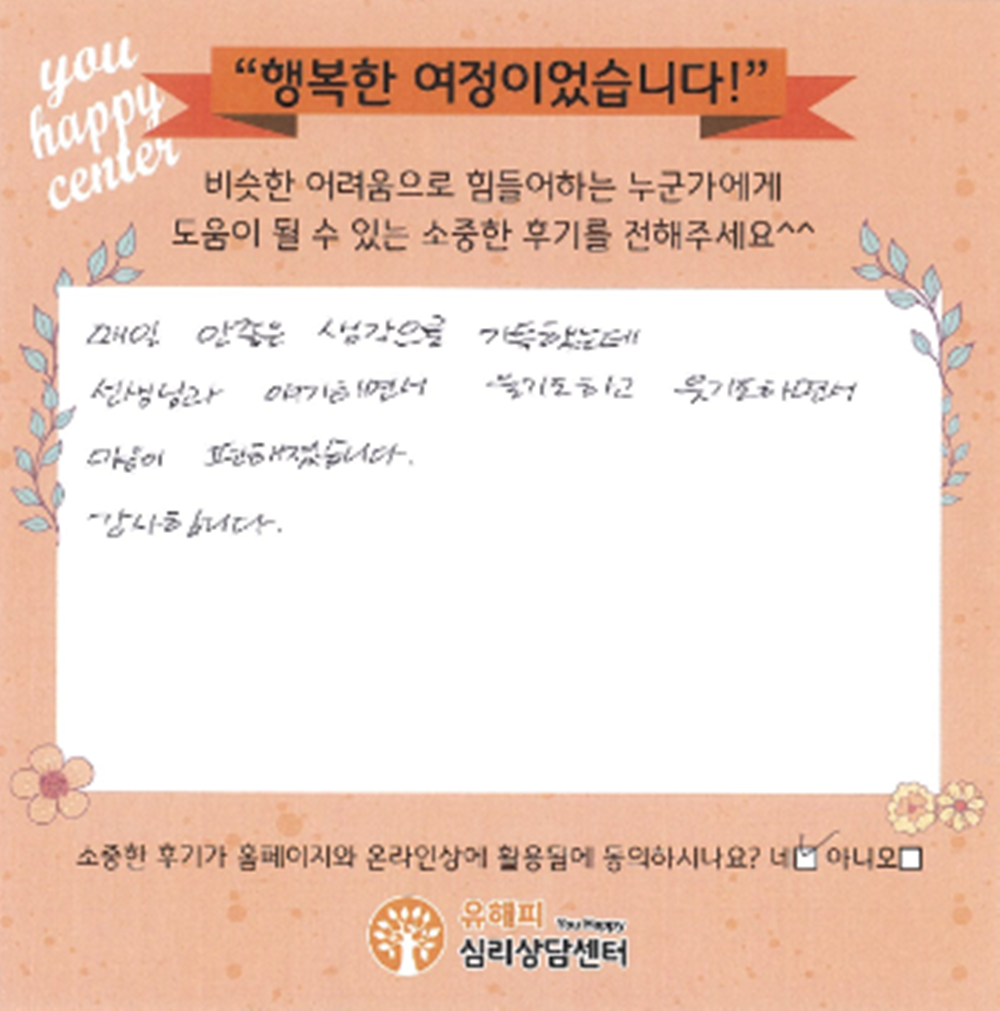 you
happy
center
“행복한 여정이었습니다!”
비슷한 어려움으로 힘들어하는 누군가에게
도움이 될 수 있는 소중한 후기를 전해주세요^^
매일 안좋은 생각으로 가득했는데
선생님과 얘기하면서 울기도하고 웃기도하면서
마음이 편해졌습니다.
감사합니다.
소중한 후기가 홈페이지와 온라인상에 활용됨에 동의하시나요? 네 아니오
유해피 You Happy
심리상담센터